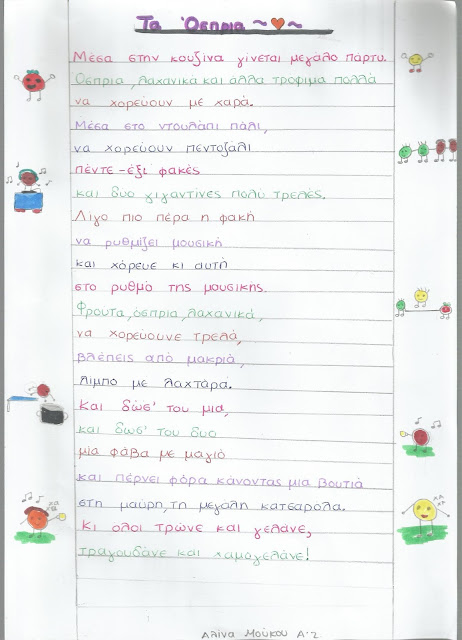 Τα Όσπρια ~ ~
Μέσα στην κουζίνα γίνεται μεγάλο πάρτυ.
Όσπρια, λαχανικά και άλλα τρόφιμα πολλά
να χορεύουν με χαρά.
Μέσα στο ντουλάπι πάλι,
να χορεύουν πεντοζάλι
πέντε-έξι φακές
και δυο γίγαντίνες πολύ τρελές.
Λίγο πιο πέρα η φακή
να ρυθμίζει μουσική
και χόρευε κι αυτή
στο ρυθμό της μουσικής.
Φρούτα, όσπρια, λαχανικά,
να χορεύουνε τρελά,
βλέπεις από μακριά,
λίμπο με λαχτάρα.
Και δώσ' του μια,
και δωσ' του δυο
μια φάβα με μαγιό
και πέρνει φόρα κάνοντας μια βουτιά
στη μαύρη, τη μεγάλη κατσαρόλα.
Κι όλοι τρώνε και γελάνε,
τραγουδάνε και χαμογελάνε!
χα χα
χα χα
Αλίνα Μούκου Α'2